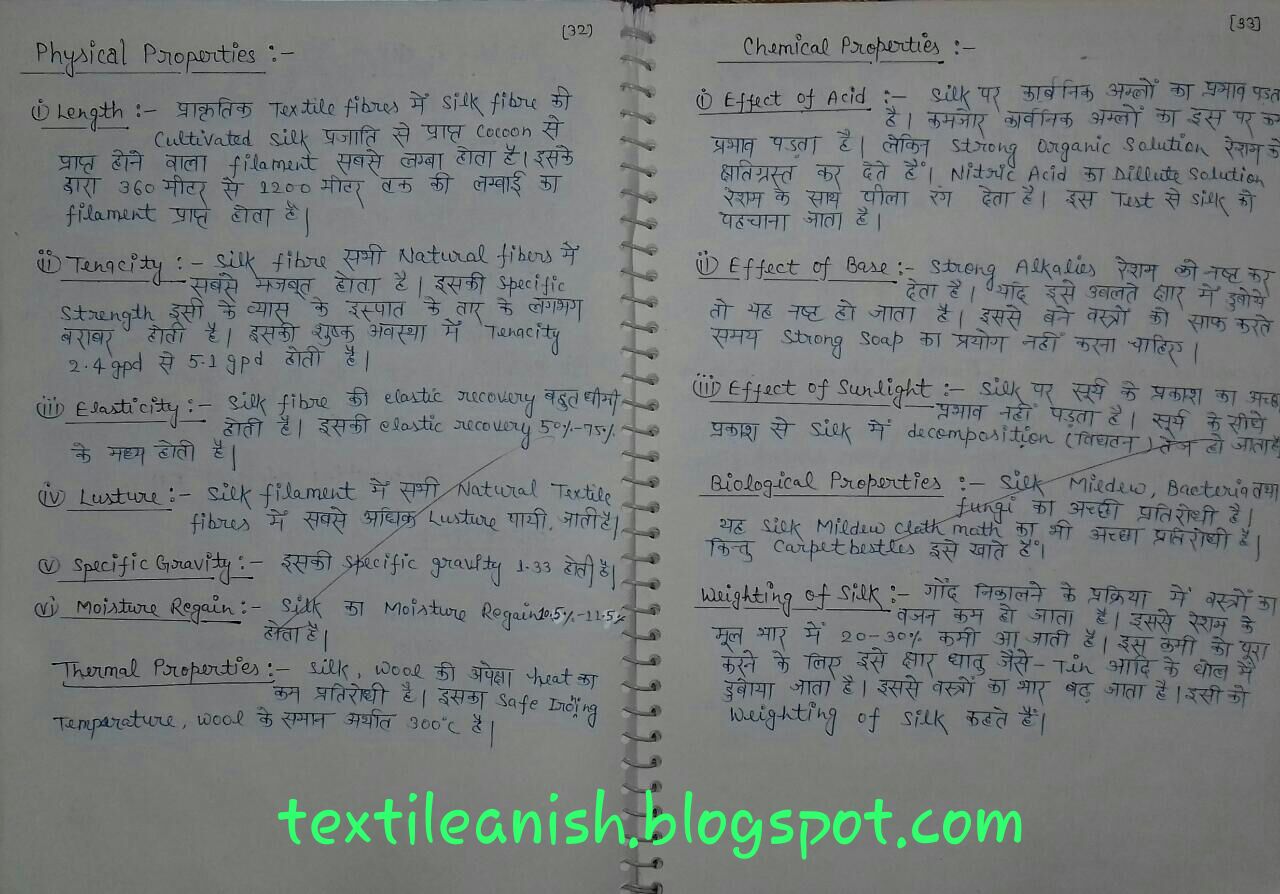 [32]
Physical Properties :-
(i) Length :- प्राकृतिक Textile fibres में Silk fibre की
Cultivated Silk प्रजाति से प्राप्त Cocoon से
प्राप्त होने वाला filament सबसे लम्बा होता है। इसके
द्वारा 360 मीटर से 1200 मीटर तक की लम्बाई का
filament प्राप्त होता है।
(ii) Tenacity :- Silk fibre सभी Natural fibers में
सबसे मजबूत होता है। इसकी Specific
Strength इसी के व्यास के इस्पात के तार के लगभग
बराबर होती है। इसकी शुष्क अवस्था में Tenacity
2.4 gpd से 5.1 gpd होती है।
(iii) Elasticity :- Silk fibre की elastic recovery बहुत धीमी
होती है। इसकी elastic recovery 50%-75%
के मध्य होती है।
(iv) Lusture :- Silk filament में सभी Natural Textile
fibres में सबसे अधिक Lusture पायी जाती है।
(v) Specific Gravity :- इसकी Specific gravity 1.33 होती है।
(vi) Moisture Regain :- Silk का Moisture Regain 10.5%-11.5%
होता है।
Thermal Properties :- Silk, wool की अपेक्षा heat का
कम प्रतिरोधी है। इसका Safe Ironing
Temperature, wool के समान अर्थात 300°c है।
[33]
Chemical Properties :-
(i) Effect of Acid :- Silk पर कार्बनिक अम्लों का प्रभाव पड़ता
है। कमजोर कार्बनिक अम्लों का इस पर कम
प्रभाव पड़ता है। लेकिन Strong Organic Solution रेशम को
क्षतिग्रस्त कर देते हैं। Nitric Acid का Dillute Solution
रेशम के साथ पीला रंग देता है। इस Test से Silk को
पहचाना जाता है।
(ii) Effect of Base :- Strong Alkalies रेशम को नष्ट कर
देता है। यदि इसे उबलते क्षार में डुबोये
तो यह नष्ट हो जाता है। इससे बने वस्त्रों को साफ करते
समय Strong Soap का प्रयोग नहीं करना चाहिए।
(iii) Effect of Sunlight :- Silk पर सूर्य के प्रकाश का अच्छा
प्रभाव नहीं पड़ता है। सूर्य के सीधे
प्रकाश से Silk में decomposition (विघटन) तेज हो जाता है
Biological Properties :- Silk Mildew, Bacteria तथा
fungi का अच्छा प्रतिरोधी है।
यह Silk Mildew Cloth math का भी अच्छा प्रतिरोधी है।
किन्तु Carpet bestles इसे खाते हैं।
Weighting of Silk :- गोंद निकालने के प्रक्रिया में वस्त्रों का
वजन कम हो जाता है। इससे रेशम के
मूल भार में 20-30% कमी आ जाती है। इस कमी को पूरा
करने के लिए इसे क्षार धातु जैसे- Tin आदि के घोल में
डुबोया जाता है। इससे वस्त्रों का भार बढ़ जाता है। इसी को
Weighting of Silk कहते हैं।
textileanish.blogspot.com